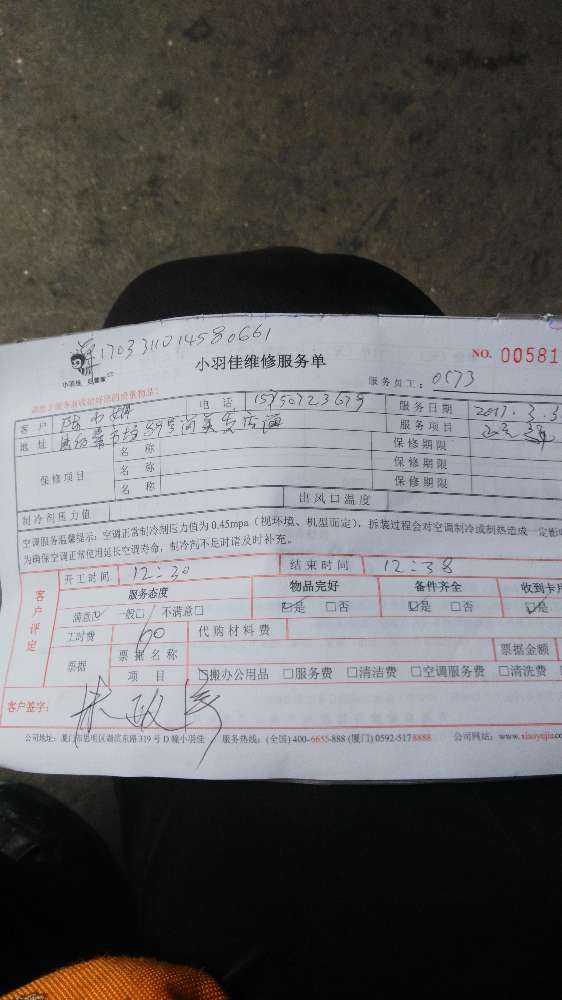 1703311014580661
小羽佳维修服务单
NO. 00581
服务员工: 0573
客户 电话 服务日期 2017.3.3
地址 服务项目
保修项目 名称 保修期限
名称 保修期限
名称 保修期限
制冷剂压力值 出风口温度
空调服务温馨提示: 空调正常制冷剂压力值为 0.45mpa (视环境、机型而定), 拆装过程会对空调制冷或制热造成一定影
为确保空调正常使用延长空调寿命, 制冷剂不足时请及时补充。
开工时间 12:30 结束时间 12:38
客户评定
服务态度 物品完好 备件齐全 收到卡片
满意☑ 一般□ 不满意□ ☑是 □否 ☑是 □否 ☑是
工时费 60 代购材料费
票据 票据名称 票据金额
项目 ☑搬办公用品 □服务费 □清洁费 □空调服务费 □清洗费
客户签字:
公司地址: 厦门市思明区湖滨东路 319 号 D 幢小羽佳 服务热线: (全国) 400-6655-888 (厦门) 0592-5178888 公司网站: www.xiaoyujia.co